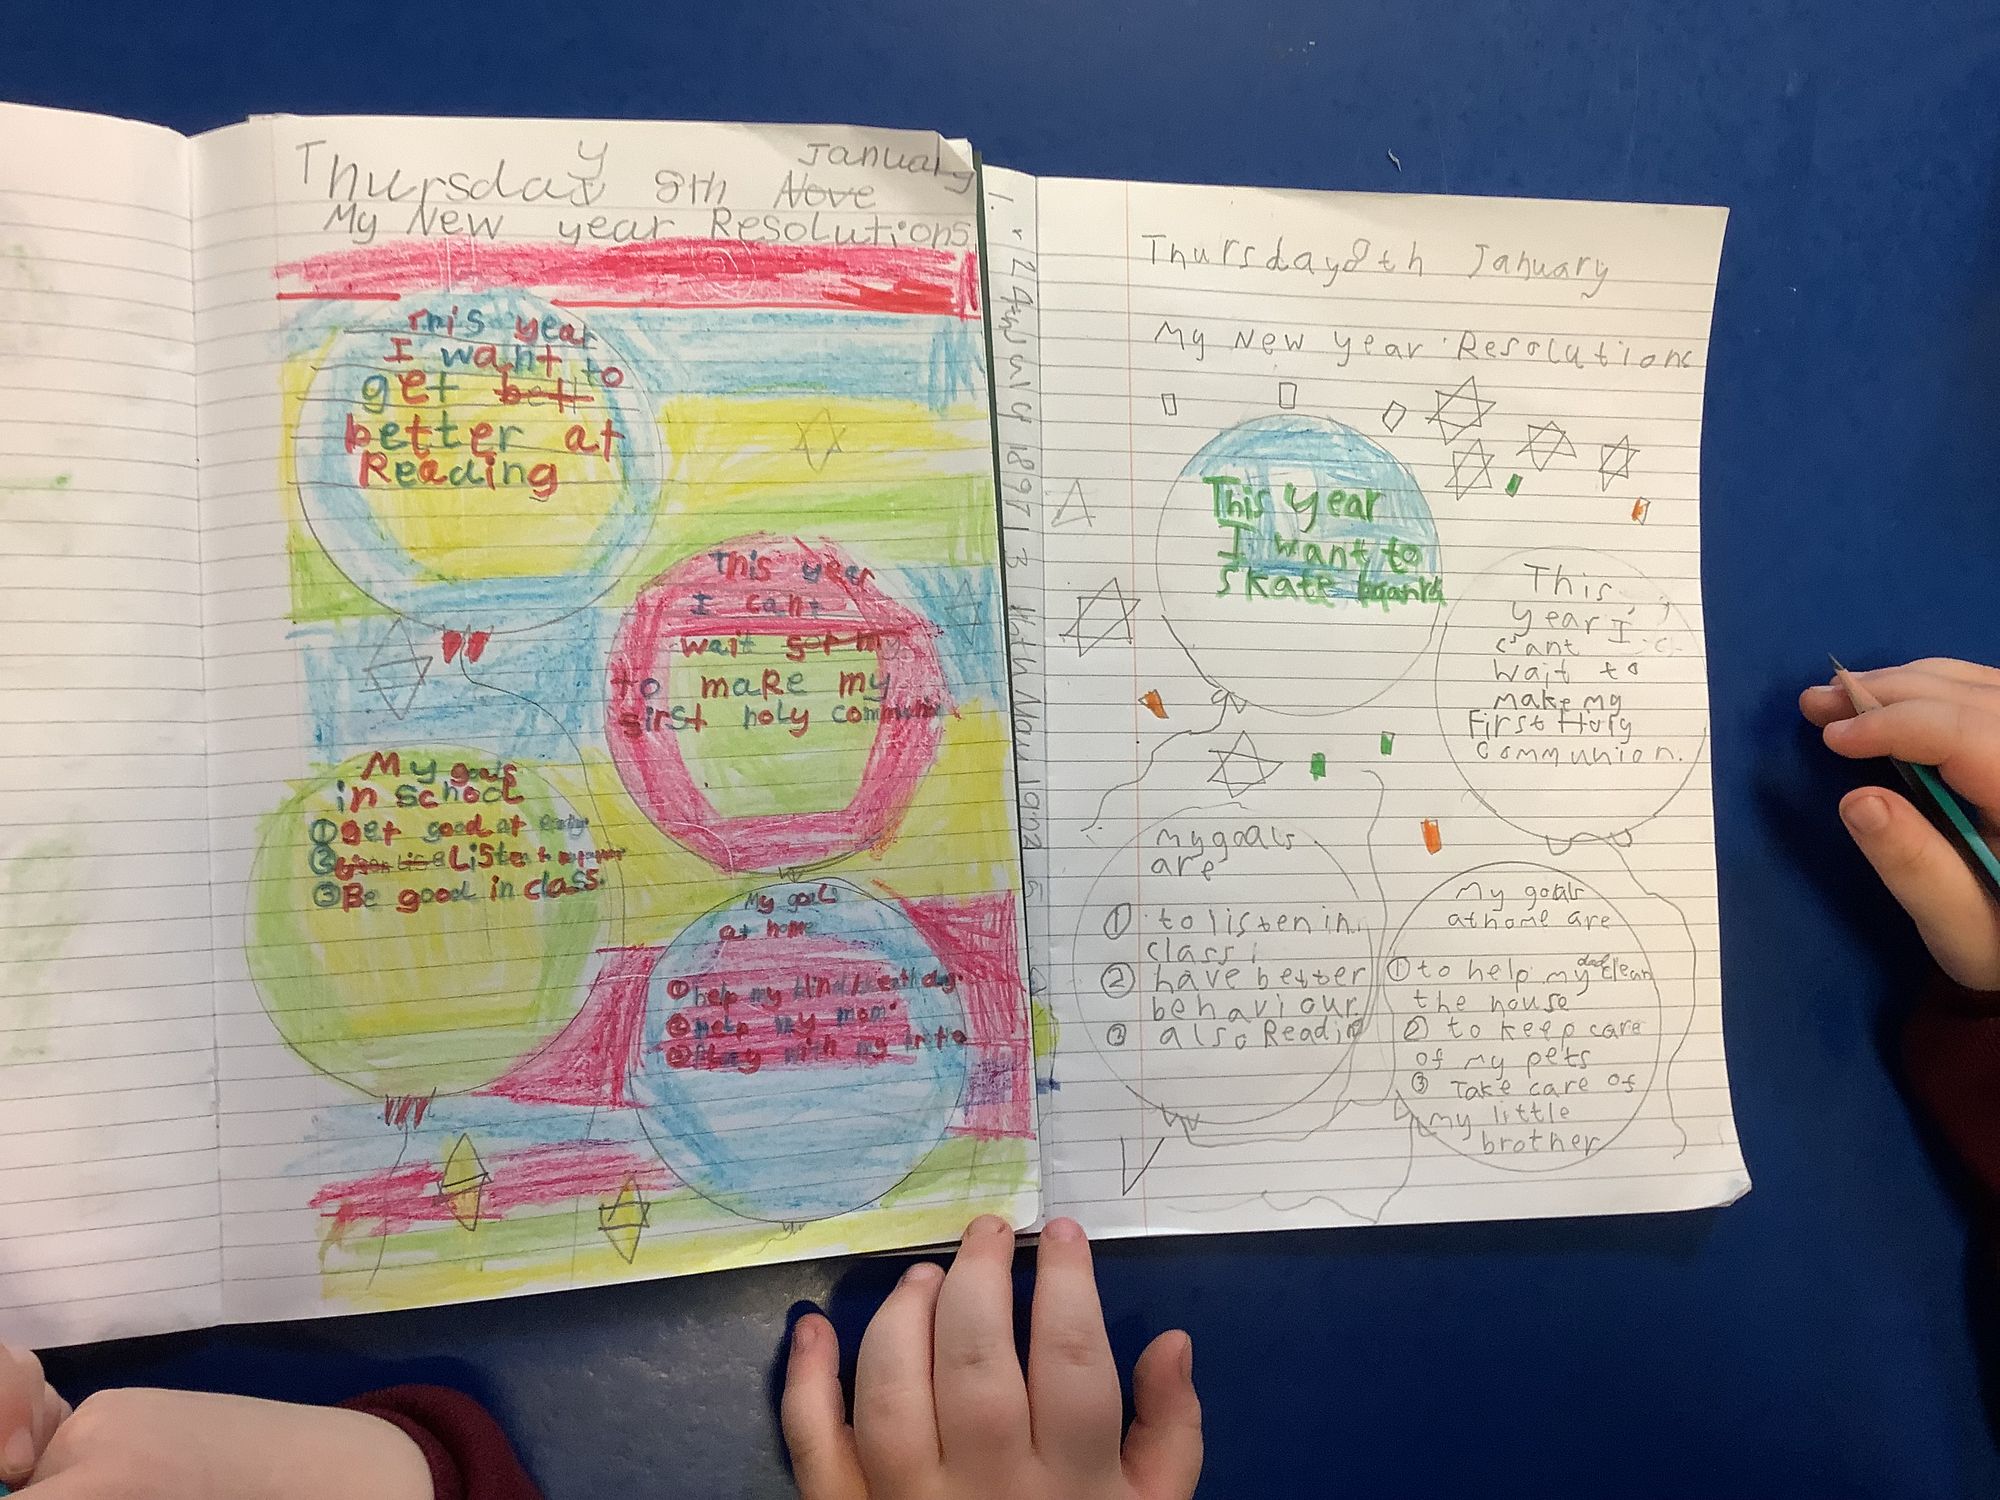 Thursday 8th Nove January
My New year Resolutions
This year
I want to
get bett
better at
Reading
This year
I cant
wait get my
to make my
first holy communion
My goals
in school
① get good at
② Listen to
③ Be good in class.
My goals
at home
① help my
② Help my mom
③ Play with my
Thursday 8th January
My New year Resolutions
This year
I want to
skate board
This
year I
cant
wait to
make my
First Holy
Communion.
My goals
are
① to listen in
class
② have better
behaviour
③ also Reading
My goals
at home are
① to help my dad clean
the house
② to keep care
of my pets
③ Take care of
my little
brother